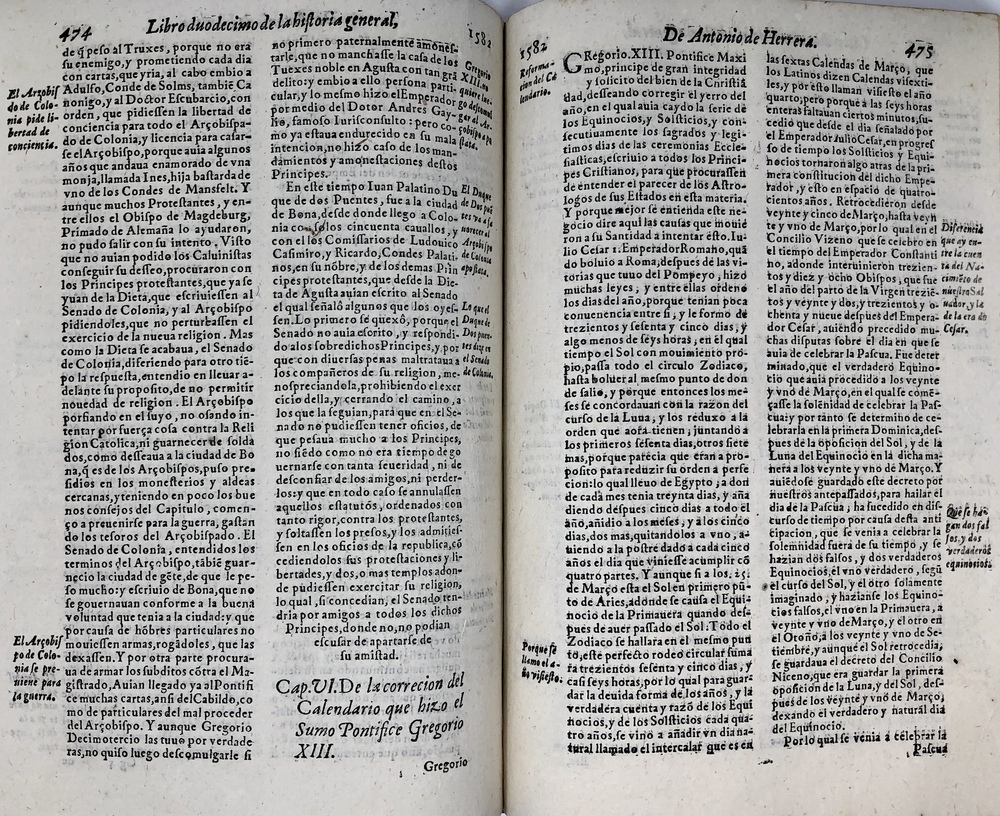 474
Libro duodecimo de la historia general,
1582
de q̃ peso al Truxes, porque no era
su enemigo, y prometiendo cada dia
con cartas, que yria, al cabo embio a
Adulfo, Conde de Solms, tambiẽ Ca
nonigo, y al Doctor Escubarcio, con
orden, que pidiessen la libertad de
conciencia para todo el Arçobispa-
do de Colonia, y licencia para casar-
se el Arçobispo, porque auia algunos
años que andaua enamorado de vna
monja, llamada Ines, hija bastarda de
vno de los Condes de Mansfelt. Y
aunque muchos Protestantes, y en-
tre ellos el Obispo de Magdeburg,
Primado de Alemaña lo ayudaron,
no pudo salir con su intento. Visto
que no auian podido los Caluinistas
conseguir su desseo, procuraron con
los Principes protestantes, que ya se
yuan de la Dieta, que escriuiessen al
Senado de Colonia, y al Arçobispo
pidiendoles, que no perturbassen el
exercicio de la nueua religion. Mas
como la Dieta se acabaua, el Senado
de Colonia, diferiendo para otro tiẽ-
po la respuesta, entendio en lleuar a-
delante su proposito, de no permitir
nouedad de religion. El Arçobispo
porfiando en el suyo, no osando in-
tentar por fuerça cosa contra la Reli
gion Catolica, ni guarnecer de solda
dos, como desseaua a la ciudad de Bo
na, q̃ es de los Arçobispos, puso pre-
sidios en los monesterios y aldeas
cercanas, y teniendo en poco los bue
nos consejos del Capitulo, comen-
ço a preuenirse para la guerra, gastan
do los tesoros del Arçobispado. El
Senado de Colonia, entendidos los
terminos del Arçobispo, tãbiẽ guar-
necio la ciudad de gẽte, de que le pe-
so mucho: y escriuio de Bona, que no
se gouernauan conforme a la buena
voluntad que tenia a la ciudad: y que
por causa de hõbres particulares no
mouiessen armas, rogãdoles, que las
dexassen. Y por otra parte procura-
ua de armar los subditos cõtra el Ma-
gistrado, Auian llegado ya al Pontifi
ce muchas cartas, ansi del Cabildo, co
mo de particulares del mal proceder
del Arçobispo. Y aunque Gregorio
Decimotercio las tuuo por verdade
ras, no quiso luego descomulgarle si
El Arçobis
do de Colo-
nia pide li-
bertad de
conciencia.
El Arçobis
po de Colo-
nia se pre-
uiene para
la guerra.
no primero paternalmente amones-
tarle, que no manchasse la casa de los
Tuexes noble en Agusta con tan grã
delito: y embio a ello persona parti-
cular, y lo mismo hizo el Emperador
por medio del Dotor Andres Gay-
lo, famoso Iurisconsulto: pero co-
mo ya estaua endurecido en su mala
intencion, no hizo caso de los man-
damientos y amonestaciones destos
Principes.
En este tiempo Iuan Palatino Du
que de dos Puentes, fue a la ciudad
de Bona, desde donde llego a Colo-
nia con solos cincuenta cauallos, y
con el los Comissarios de Ludouico
Casimiro, y Ricardo, Condes Palati-
nos, en su nõbre, y de los demas Prin
cipes protestantes, que desde la Die-
ta de Agusta auian escrito al Senado
el qual señalò algunos que los oyes-
sen. Lo primero se quexò, porque el
Senado no auia escrito, y respondi-
do a los sobredichos Principes, y por
que con diuersas penas maltrataua a
los compañeros de su religion, me-
nospreciandola, prohibiendo el exer
cicio della, y cerrando el camino, a
los que la seguian, para que en el Se-
nado no pudiessen tener oficios, de
que pesaua mucho a los Principes,
no siẽdo como no era tiempo de go
uernarse con tanta seueridad, ni de
desconfiar de los amigos, ni perder-
los: y que en todo caso se annulassen
aquellos estatutos, ordenados con
tanto rigor, contra los protestantes,
y soltassen los presos, y los admities-
sen en los oficios de la republica, cõ
cediendolos sus protestaciones y li-
bertades, y dos, o mas templos adon-
de pudiessen exercitar su religion,
lo qual, si concedian, el Senado ten-
dria por amigos a todos los dichos
Principes, donde no, no podian
escusar de apartarse de
su amistad.
Cap. VI. De la correcion del
Calendario que hizo el
Sumo Pontifice Gregorio
XIII.
Gregorio
Gregorio
El Duque
de Dos puẽ
Lo que el
Duque de
Dos puen-
tes dize en
el Senado
de Colonia.
1582
De Antonio de Herrera.
475
Reforma-
cion del Ca
lendario.
GRegorio. XIII. Pontifice Maxi
mo, principe de gran integridad
y solicito del bien de la Christiã
dad, desseando corregir el yerro del
año, en el qual auia caydo la serie de
los Equinocios, y Solsticios, y con-
secutiuamente los sagrados y legi-
timos dias de las ceremonias Eccle-
siasticas, escriuio a todos los Princi-
pes Cristianos, para que procurassen
de entender el parecer de los Astro-
logos de sus Estados en esta materia.
Y porque mejor se entienda este ne-
gocio dire aqui las causas que mouie
ron a su Santidad a intentar esto. Iu-
lio Cesar I. Emperador Romano, quã
do boluio a Roma, despues de las vi-
torias que tuuo del Pompeyo, hizo
muchas leyes, y entre ellas ordenò
los dias del año, porque tenian poca
conuenencia entre si, y le formò de
trezientos y sesenta y cinco dias, y
algo menos de seys horas, en el qual
tiempo el Sol con mouimiento pro-
pio, passa todo el circulo Zodiaco,
hasta boluer al mismo punto de don
de salio, y porque entonces los me-
ses se concordauan con la razon del
curso de la Luna, y los reduxo a la
orden que aora tienen; juntando a
los primeros sesenta dias, otros siete
mas, porque parecia que eran a pro-
posito para reduzir su orden a perfe
cion: lo qual lleuo de Egypto, a don
de cada mes tenia treynta dias, y aña
diendo despues cinco dias a todo el
año, añidio a los meses, y a los cinco
dias, dos mas, quitandolos a vno, a-
uiendo a la postre dado a cada cinco
años el dia que viniesse a cumplir cõ
quatro partes. Y aunque si a los. 25.
de Março esta el Sol en primero pũ-
to de Aries, adonde se causa el Equi-
nocio de la Primauera quando des-
pues de auer passado el Sol: Todo el
Zodiaco se hallara en el mesmo pun
to, este perfecto rodeo circular suma
ra trezientos sesenta y cinco dias, y
casi seys horas, por lo qual para guar-
dar la deuida forma de los años, y la
verdadera cuenta y razõ de los Equi
nocios, y de los Solsticios cada qua-
tro años, se vino a añadir vn dia na-
tural llamado el intercalar que es en
Porque se
llamo el a-
ño visiesto.
las sextas Calendas de Março, que
los Latinos dizen Calendas visexti-
les, y por esto llaman visiesto el año
quarto, pero porque a las seys horas
enteras faltauan ciertos minutos, su-
cediò que desde el dia señalado por
el Emperador Iulio Cesar, en progres
so de tiempo los Solsticios y Equi-
nocios tornaron algo atras de la pri-
mera constitucion del dicho Empe-
rador, y esto en espacio de quatro-
cientos años. Retrocedieron desde
veynte y cinco de Março, hasta veyn
te y vno de Março, por lo qual en el
Concilio Vizeno que se celebrò en
el tiempo del Emperador Constanti
no, adonde interuinieron trezien-
tos y diez y ocho Obispos, que fue
el año del parto de la Virgen trezie-
tos y veynte y dos, y trezientos y o-
chenta y nueue despues del Empera-
dor Cesar, auiendo precedido mu-
chas disputas sobre el dia en que se
auia de celebrar la Pascua. Fue deter
minado, que el verdadero Equino-
cio que auia procedido a los veynte
y vnò de Março, en el qual se come-
çasse la solenidad de celebrar la Pas-
cua: y por tanto se determinò de ce-
lebrarla en la primera Dominica, des-
pues de la oposicion del Sol, y de la
Luna del Equinocio en la dicha ma-
nera a los veynte y vno de Março. Y
auiẽdose guardado este decreto por
nuestros antepassados, para hallar el
dia de la Pascua, ha sucedido en dis-
curso de tiempo por causa desta anti
cipacion, que se venia a celebrar la
solemnidad fuera de su tiempo, y se
hazian dos falsos, y dos verdaderos
Equinocios, el vno verdadero, segũ
el curso del Sol, y el otro solamente
imaginado, y hazianse los Equino-
cios falsos, el vno en la Primauera, a
veynte y vno de Março, y el otro en
el Otoño, a los veynte y vno de Se-
tiembre, y aunque el Sol retrocedia,
se guardaua el decreto del Concilio
Niceno, que era guardar la primera
oposicion de la Luna, y del Sol, des-
pues de los veynte y vno de Março,
dexando el verdadero y natural dia
del Equinocio.
Por lo qual se venia a celebrar la
Pascua
Diferencia
que ay en-
tre la cuen
ta del Na-
cimiẽto de
nuestro Sal
uador, y la
de la era de
Cesar.
Que se ha-
zian dos fal
sos, y dos
verdaderos
equinocios.